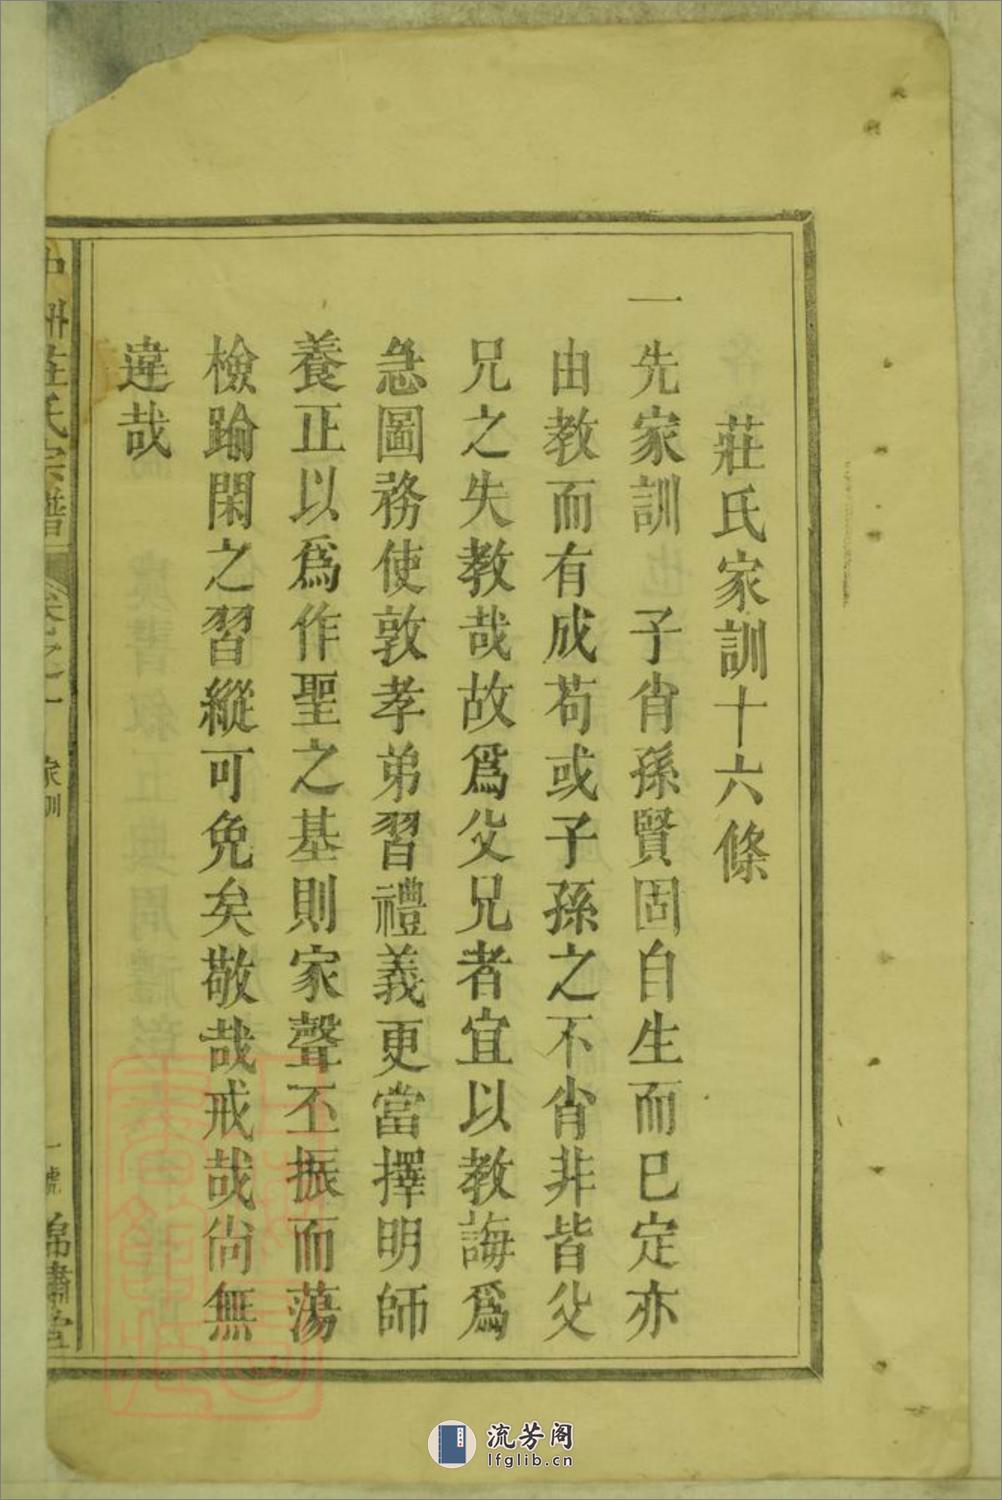 莊氏家訓十六條
一先家訓　子肖孫賢固自生而已定亦
由教而有成苟或子孫之不肖非皆父
兄之失教哉故爲父兄者宜以教誨爲
急圖務使敦孝弟習禮義更當擇明師
養正以爲作聖之基則家聲丕振而蕩
檢踰閑之習縱可免矣敬哉戒哉尙無
違哉
莊氏宗譜 卷之一 家訓 一號 錦繡堂
流芳阁
lfglib.cn